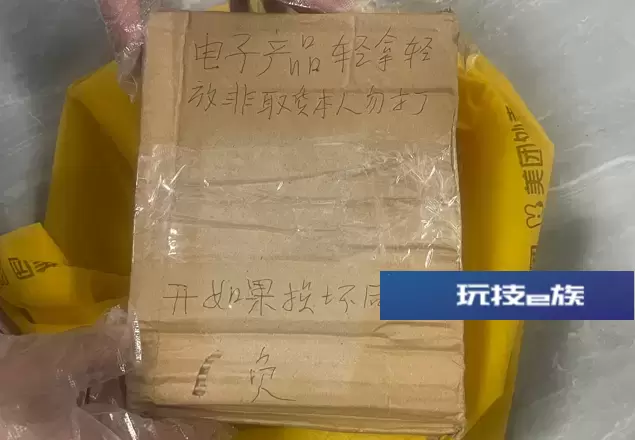 电子产品轻拿轻
放非取货本人勿打
开如果损坏
负
美团外
玩技e族